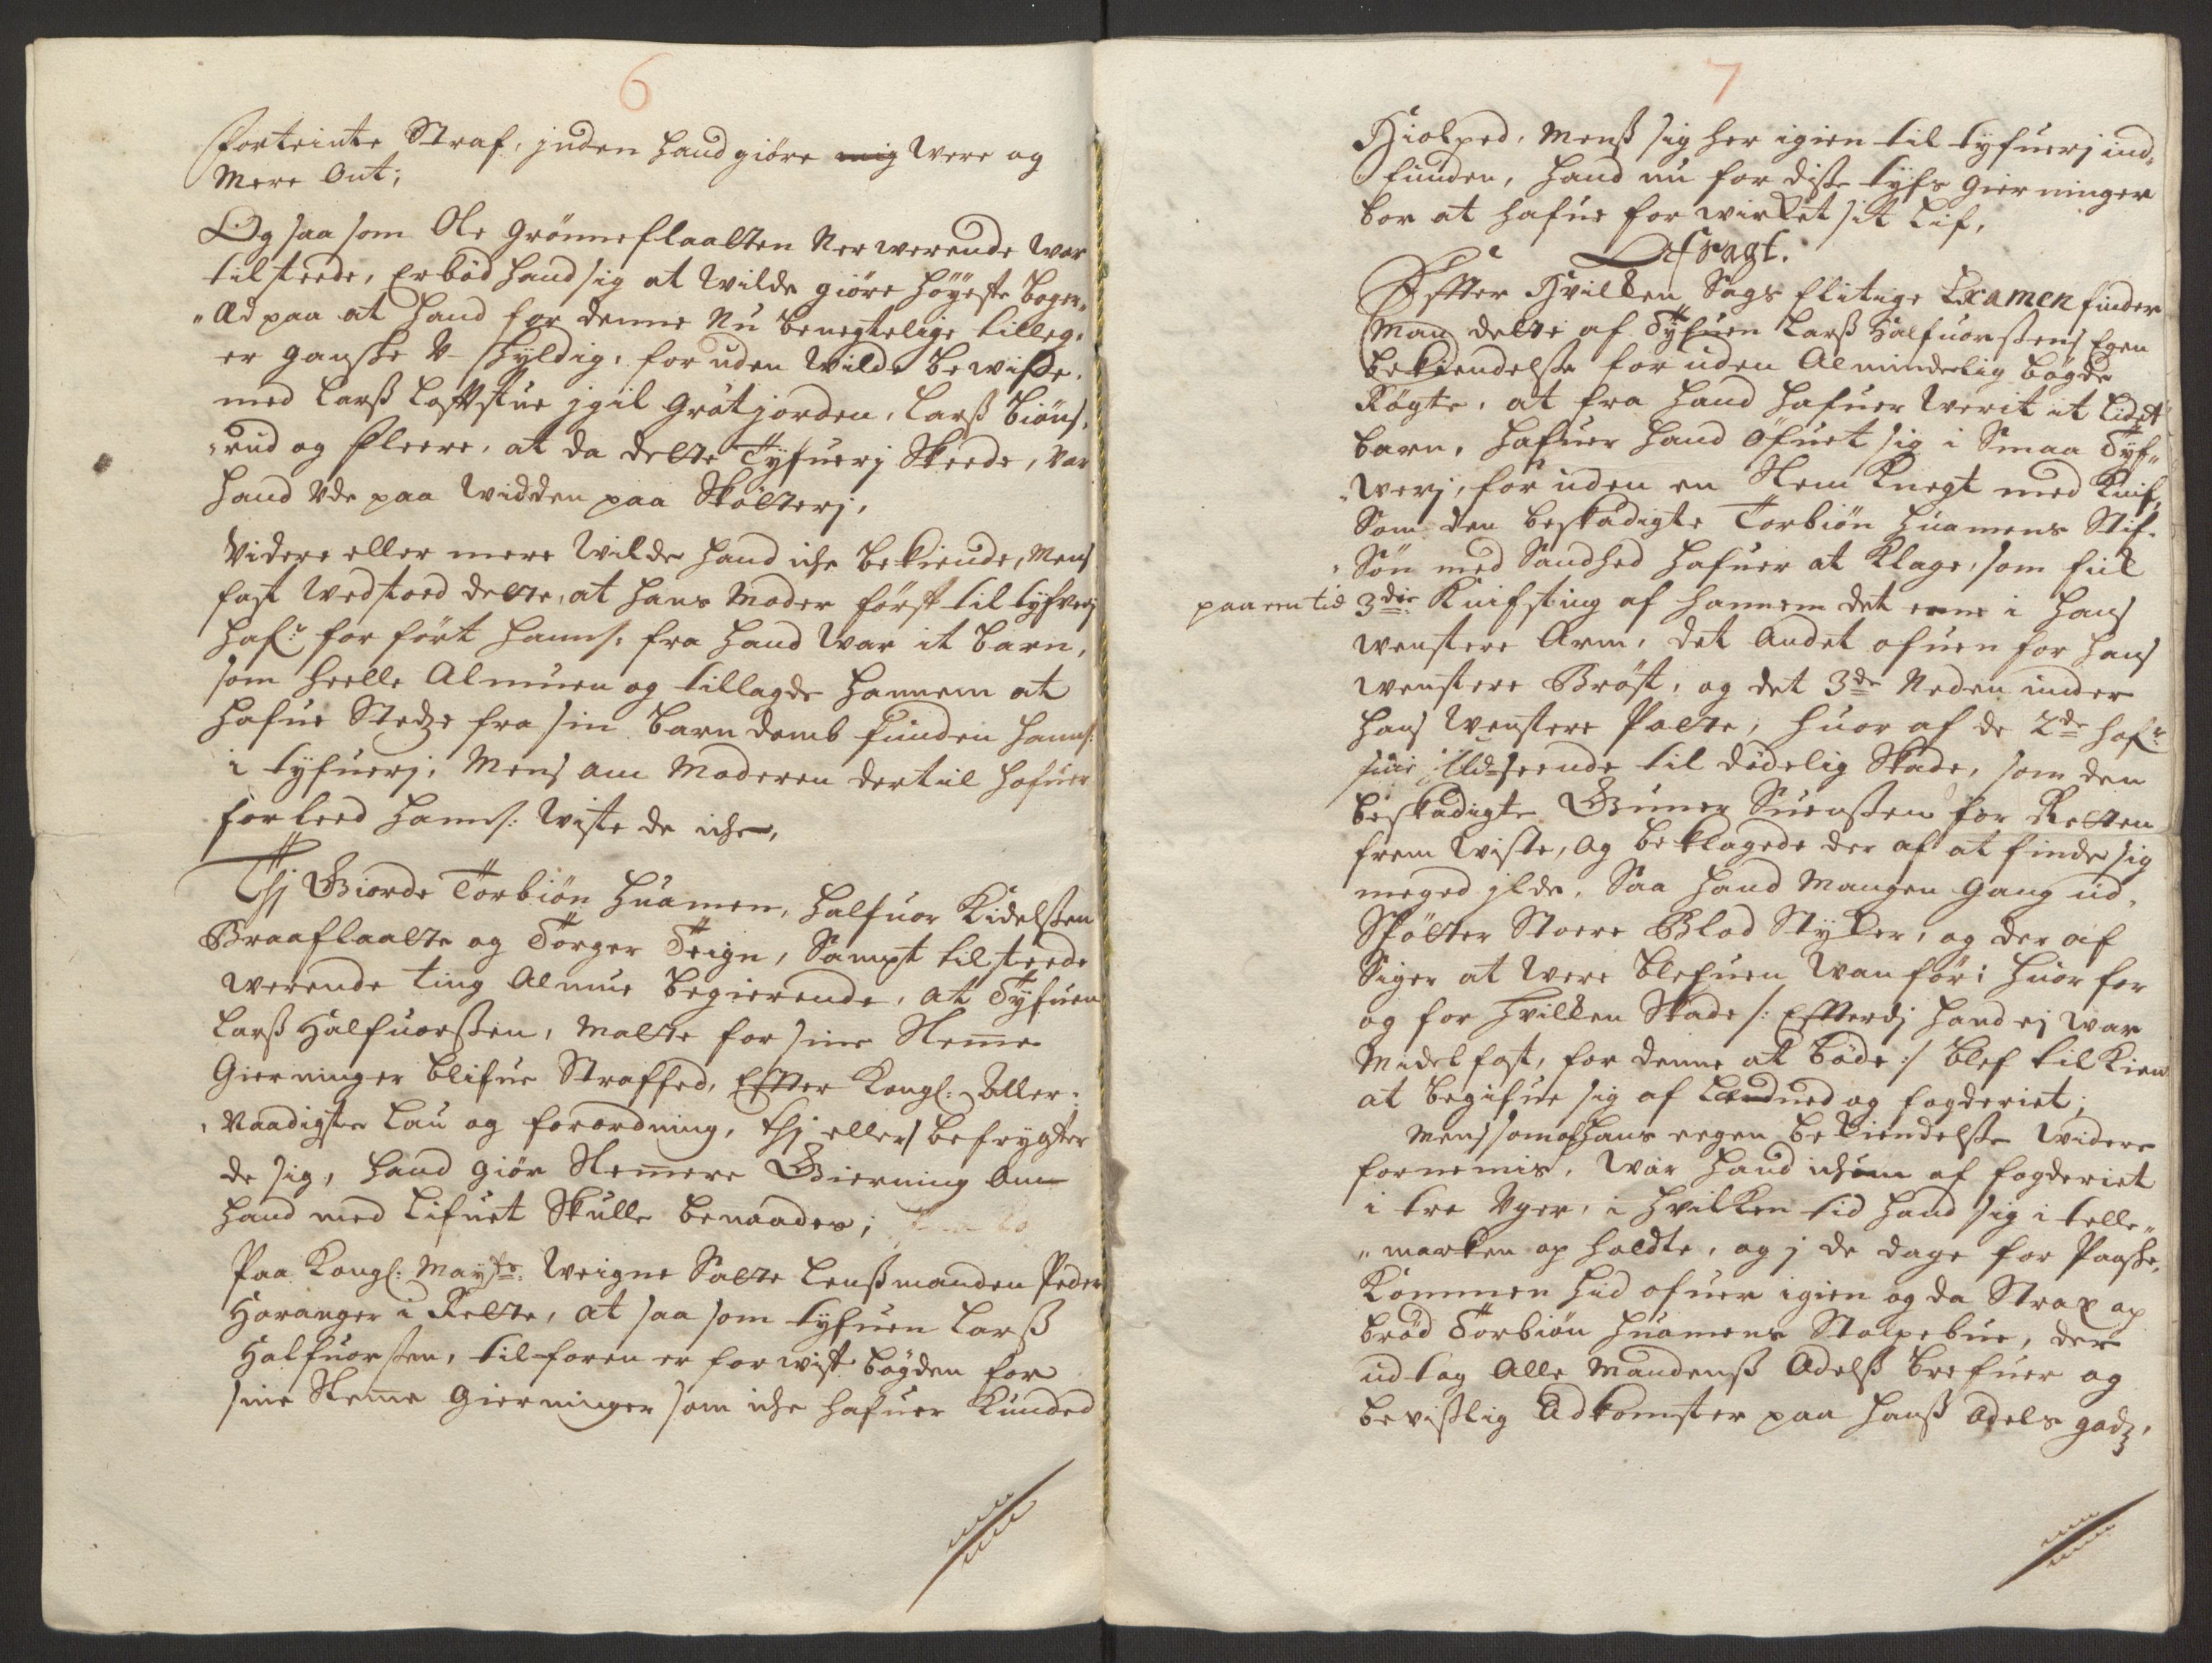 6
Forteinte Straf, inden hand giöre mig Vere og
Mere Ont;
Og saa som Ole Grønneflaatten Nerwerende War
tilstede, Erböd hand sig at Wilde giöre höyeste Boger„
„Ed paa at hand for denne Nu benegtelige tilleg.
er gansche V-schyldig, for uden Wilde bewisse.
med Larß Lofftstue jgil Gråtjorden, Larß Biöns„
„rud og fleere, at da dette Tyfuerj Skeede, Var
hand Vde paa Widden paa Skötterj,
Videre eller mere Wilde hand iche bekiende, Mens
fast Wedstoed dette, at hans Moder först til tyfverj
hafr: forfört hannß: fra hand War it barn,
som heelle Almuen og tillagde hannem at
hafue Stedze fra sin barndomb funden hannß:
i tyfuerj, Mens Om Moderen dertil hafuer
forleed hannß: Wiste de iche,
Thj Giorde Torbiön Huamen, Halfuor Kidelßen
Braaflaatte og Törger Teign, Sampt tilsteede
Werende ting Almue begierende, At Tyfuen
Larß Halfuorßen, Motte for sine Slemme
Gierninger blifue Straffed, Effter Kongl: Aller:
„Naadigste Lau og forordning, thj ellers befrygter
de sig, hand giör Slemmere Gierning Om
hand med Lifuet Skulle benaades;
Paa Kongl: Mayts: Weigne Satte Lenßmanden Peder
Haranger i Rette, At saa som tyfuen Larß
Halfuorßen, til-foren er forwist bögden for
sine Slemme Gierninger som iche hafuer Kunded
7
Hiolped, Menß sig her igien til tyfuerj ind„
„funden, hand nu for diße tyfs Gierninger
bör at hafue forwirket sit Lif,
Afsagt.
Effter Hvilken Sags flitige Examen finder
Man dette af Tyfuen Larß Halfuorßens Egen
bekiendelße foruden Almindelig bögde
Rögte, at fra hand hafuer Werit it Lidet
barn, hafuer hand Öfuet sig i Smaa Tyf„
„Werj, foruden en Slem Knegt med Knif,
Som den beskadigte Torbiön Huamens Stif„
„Sön med Sandhed hafuer at Klage, som fiik
paa een tid 3die: Knifsting af hannem det eene i hans
wenstere Arm, det Andet ofuen for hans
wenstere Bröst, og det 3de Neden under
hans Wenstere Patte, huor af de 2de hafr:
Ud-seende til dödelig Skade, som den
beskadigte Gunner Suenßen for Retten
frem Wiste, Og beklagede der af at finde sig
meged jlde, Saa hand Mangen Gang ud„
Spötter Stoere Blod Styker, og der af
Siger at Were blefuen Wanför: huor for
og for Hvilken Skade /: Effterdj hand ej War
Middelfast, for denne at böde :/ blef tilkien
at begifue sig af Landned og fogderiet;
Mens som af hans eegen bekiendelße Widere
fornemis, War hand iche uden af fogderiet
i tre Vger, i Hvilken tid hand sig i telle„
„marken opholdte, og j de dage for Paasche,
Kommen hid ofuer igien og da Strax op
bröd Torbiön Huamens Stolpebue, der
udtog Alle Mandenß Odelß brefuer og
bevißlig Adkomster paa hanß Odels godz,